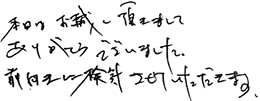 本日はお越し頂きまして
ありがとうございました。
前向きに検討させていただきます。